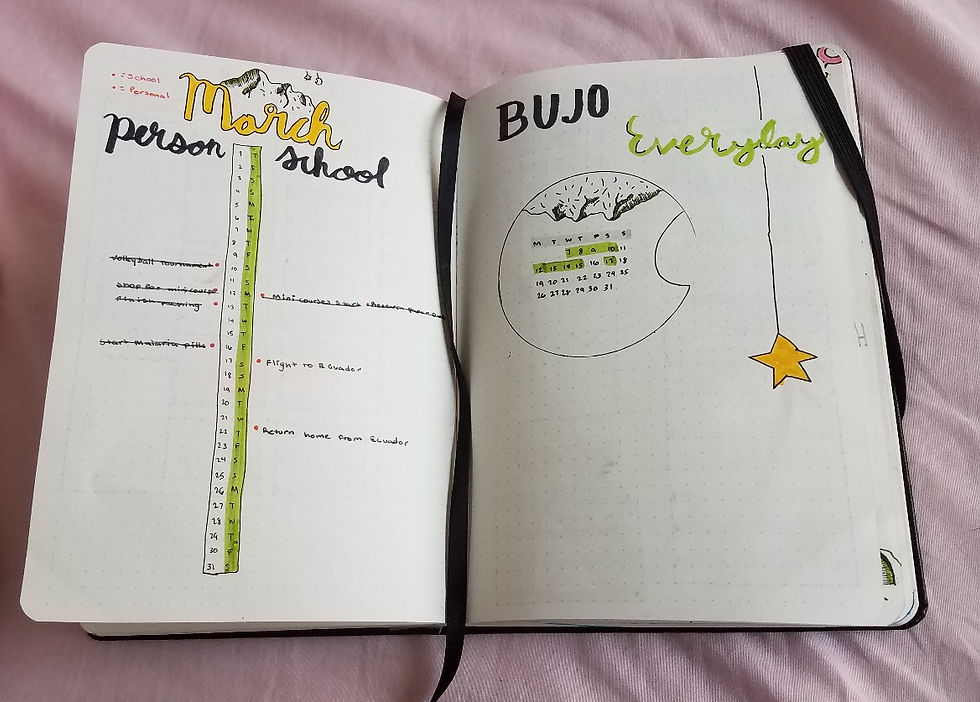 • = School
• = Personal
March
person school
1 T
2 F
3 S
4 S
5 M
6 T
7 W
8 T
9 F
Volleyball tournament
10 S
11 S
shop for minicourse
12 M
Mini courses start
Finish
13 T
14 W
15 T
Start malaria pills
16 F
17 S
Flight to Ecuador
18 S
19 M
20 T
21 W
22 T
Return home from Ecuador
23 F
24 S
25 S
26 M
27 T
28 W
29 T
30 F
31 S
BUJO
Everyday
M T W T F S S
7 8 9 10 11
12 13 14 15 16 17 18
19 20 21 22 23 24 25
26 27 28 29 30 31